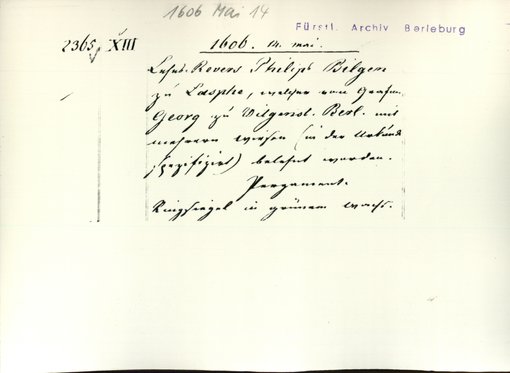 1606 Mai 14
Fürstl. Archiv Berleburg
2365 XIII
1606. 14. mai.
Lehns-Revers Philips Bilgen
zu Laasphe, welcher von Grafen
Georg zu Witgenst. Berl. mit
mehreren wiesen (in der Urkunde
spezifizirt) belehnt worden.
Pergament.
Ringsiegel in grünem wachs.